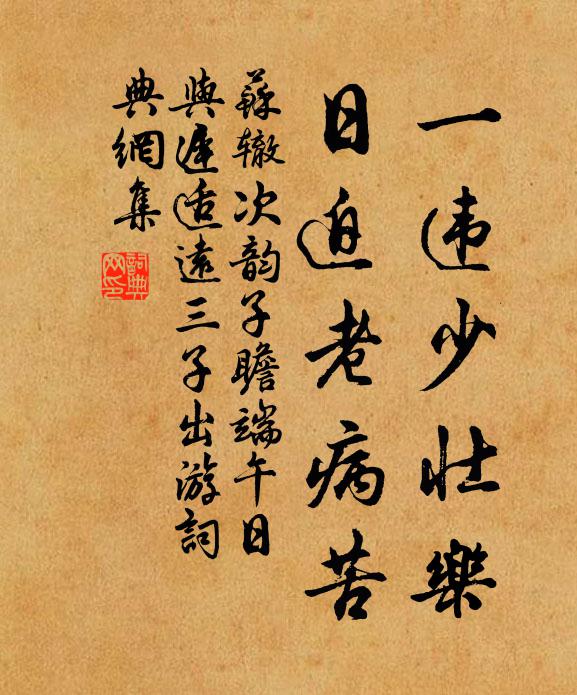 一违少壮樂
日迫老病苦
蘇辙次韵子瞻端午日
與遲适遠三子出游詞
典網集
詞典
网印